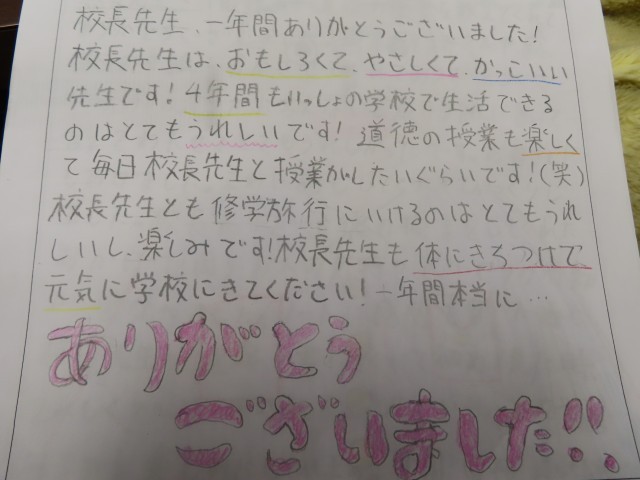 校長先生、一年間ありがとうございました!
校長先生は、おもしろくて、やさしくて、かっこいい
先生です!4年間もいっしょの学校で生活できる
のはとてもうれしいです! 道徳の授業も楽しく
て毎日校長先生と授業がしたいぐらいです!(笑)
校長先生とも修学旅行にいけるのはとてもうれ
しいし、楽しみです!校長先生も体にきをつけて
元気に学校にきてください!一年間本当に…
ありがとう
ございました!!